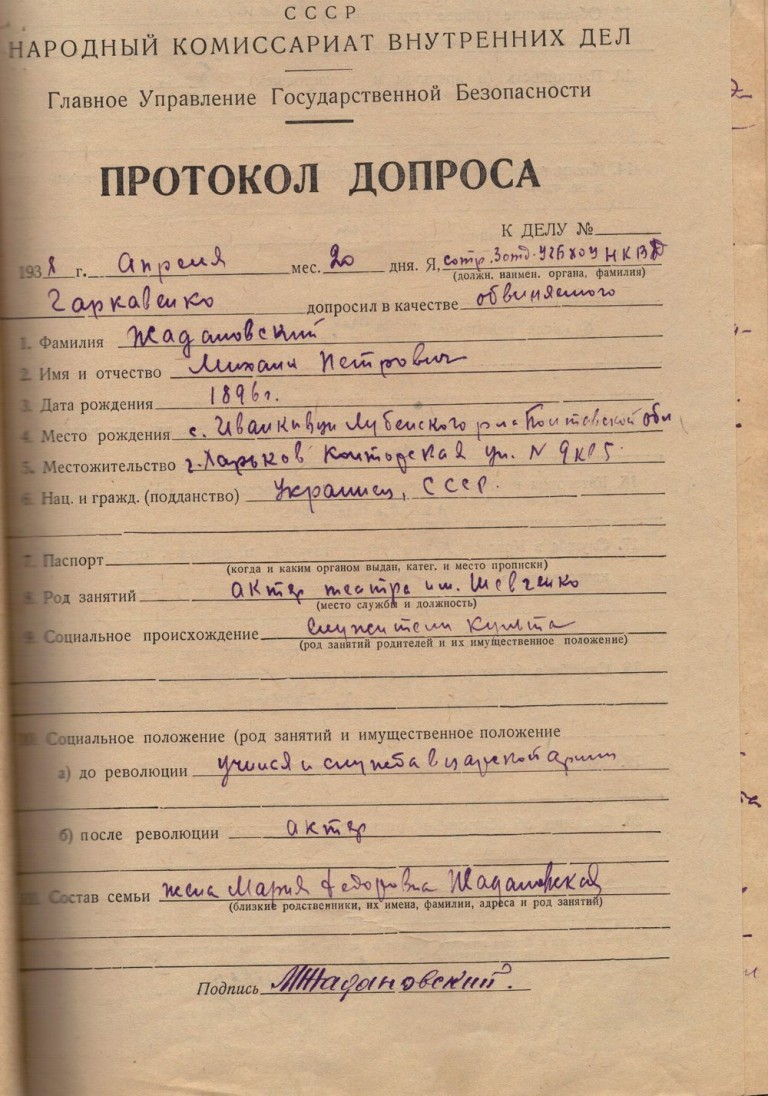 СССР
НАРОДНЫЙ КОМИССАРИАТ ВНУТРЕННИХ ДЕЛ
Главное Управление Государственной Безопасности
ПРОТОКОЛ ДОПРОСА
К ДЕЛУ №
1938 г. Апреля мес. 20 дня. Я, сотр. 3 отд. УГБ ХОУ НКВД
(должн. наимен. органа, фамилия)
Гаркавенко допросил в качестве обвиняемого
1. Фамилия Жадановский
2. Имя и отчество Михаил Петрович
3. Дата рождения 1896 г.
4. Место рождения с. Иванкивци Лубенского р-на Полтавской обл
5. Местожительство г. Харьков Конторская ул. N 9 кв 5
6. Нац. и гражд. (подданство) Украинец, СССР.
7. Паспорт
(когда и каким органом выдан, катег. и место прописки)
8. Род занятий актер театра им. Шевченко
(место службы и должность)
9. Социальное происхождение служители культа
(род занятий родителей и их имущественное положение)
Социальное положение (род занятий и имущественное положение
а) до революции учился и служба в царской армии
б) после революции актер
Состав семьи жена Мария Федоровна Жадановская
(близкие родственники, их имена, фамилии, адреса и род занятий)
Подпись МЖадановский.